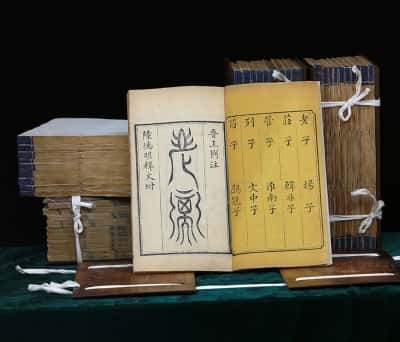 老子 揚子
莊子 韓非子
管子 淮南子
列子 文中子
荀子 鶡冠子
晉王弼注
老子
陸德明釋文附